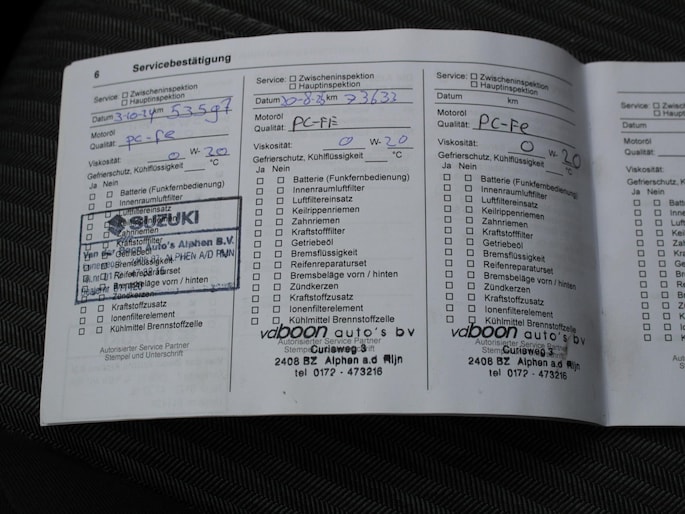 6 Servicebestätigung
Service: ☐ Zwischeninspektion
☐ Hauptinspektion
Datum 3-10-24 km 53597
Motoröl
Qualität: PC-Fe
Viskosität: 0 W- 20
Gefrierschutz, Kühlflüssigkeit °C
Ja Nein
Batterie (Funkfernbedienung)
Innenraumluftfilter
Luftfiltereinsatz
SUZUKI
Zahnriemen
Kraftstofffilter
Van der Boon Auto's Alphen B.V.
Getriebeöl
ALPHEN A/D RIJN
Bremsflüssigkeit
Reifenreparaturset
Bremsbeläge vorn / hinten
Zündkerzen
Kraftstoffzusatz
Ionenfilterelement
Kühlmittel Brennstoffzelle
Autorisierter Service Partner
Stempel und Unterschrift
Service: ☐ Zwischeninspektion
☐ Hauptinspektion
Datum km 73633
Motoröl
Qualität: PC-FE
Viskosität: 0 W- 20
Gefrierschutz, Kühlflüssigkeit °C
Ja Nein
Batterie (Funkfernbedienung)
Innenraumluftfilter
Luftfiltereinsatz
Keilrippenriemen
Zahnriemen
Kraftstofffilter
Getriebeöl
Bremsflüssigkeit
Reifenreparaturset
Bremsbeläge vorn / hinten
Zündkerzen
Kraftstoffzusatz
Ionenfilterelement
Kühlmittel Brennstoffzelle
vdboon auto's bv
Autorisierter Service Partner
Curiaweg 3
2408 BZ Alphen a.d Rijn
tel 0172 - 473216
Service: ☐ Zwischeninspektion
☐ Hauptinspektion
Datum km
Motoröl
Qualität: PC-Fe
Viskosität: 0 W- 20
Gefrierschutz, Kühlflüssigkeit °C
Ja Nein
Batterie (Funkfernbedienung)
Innenraumluftfilter
Luftfiltereinsatz
Keilrippenriemen
Zahnriemen
Kraftstofffilter
Getriebeöl
Bremsflüssigkeit
Reifenreparaturset
Bremsbeläge vorn / hinten
Zündkerzen
Kraftstoffzusatz
Ionenfilterelement
Kühlmittel Brennstoffzelle
vdboon auto's bv
Autorisierter Service Partner
Curiaweg 3
2408 BZ Alphen a.d Rijn
tel 0172 - 473216
Service: ☐
☐
Datum
Motoröl
Qualität:
Viskosität:
Gefrierschutz, K
Ja Nein